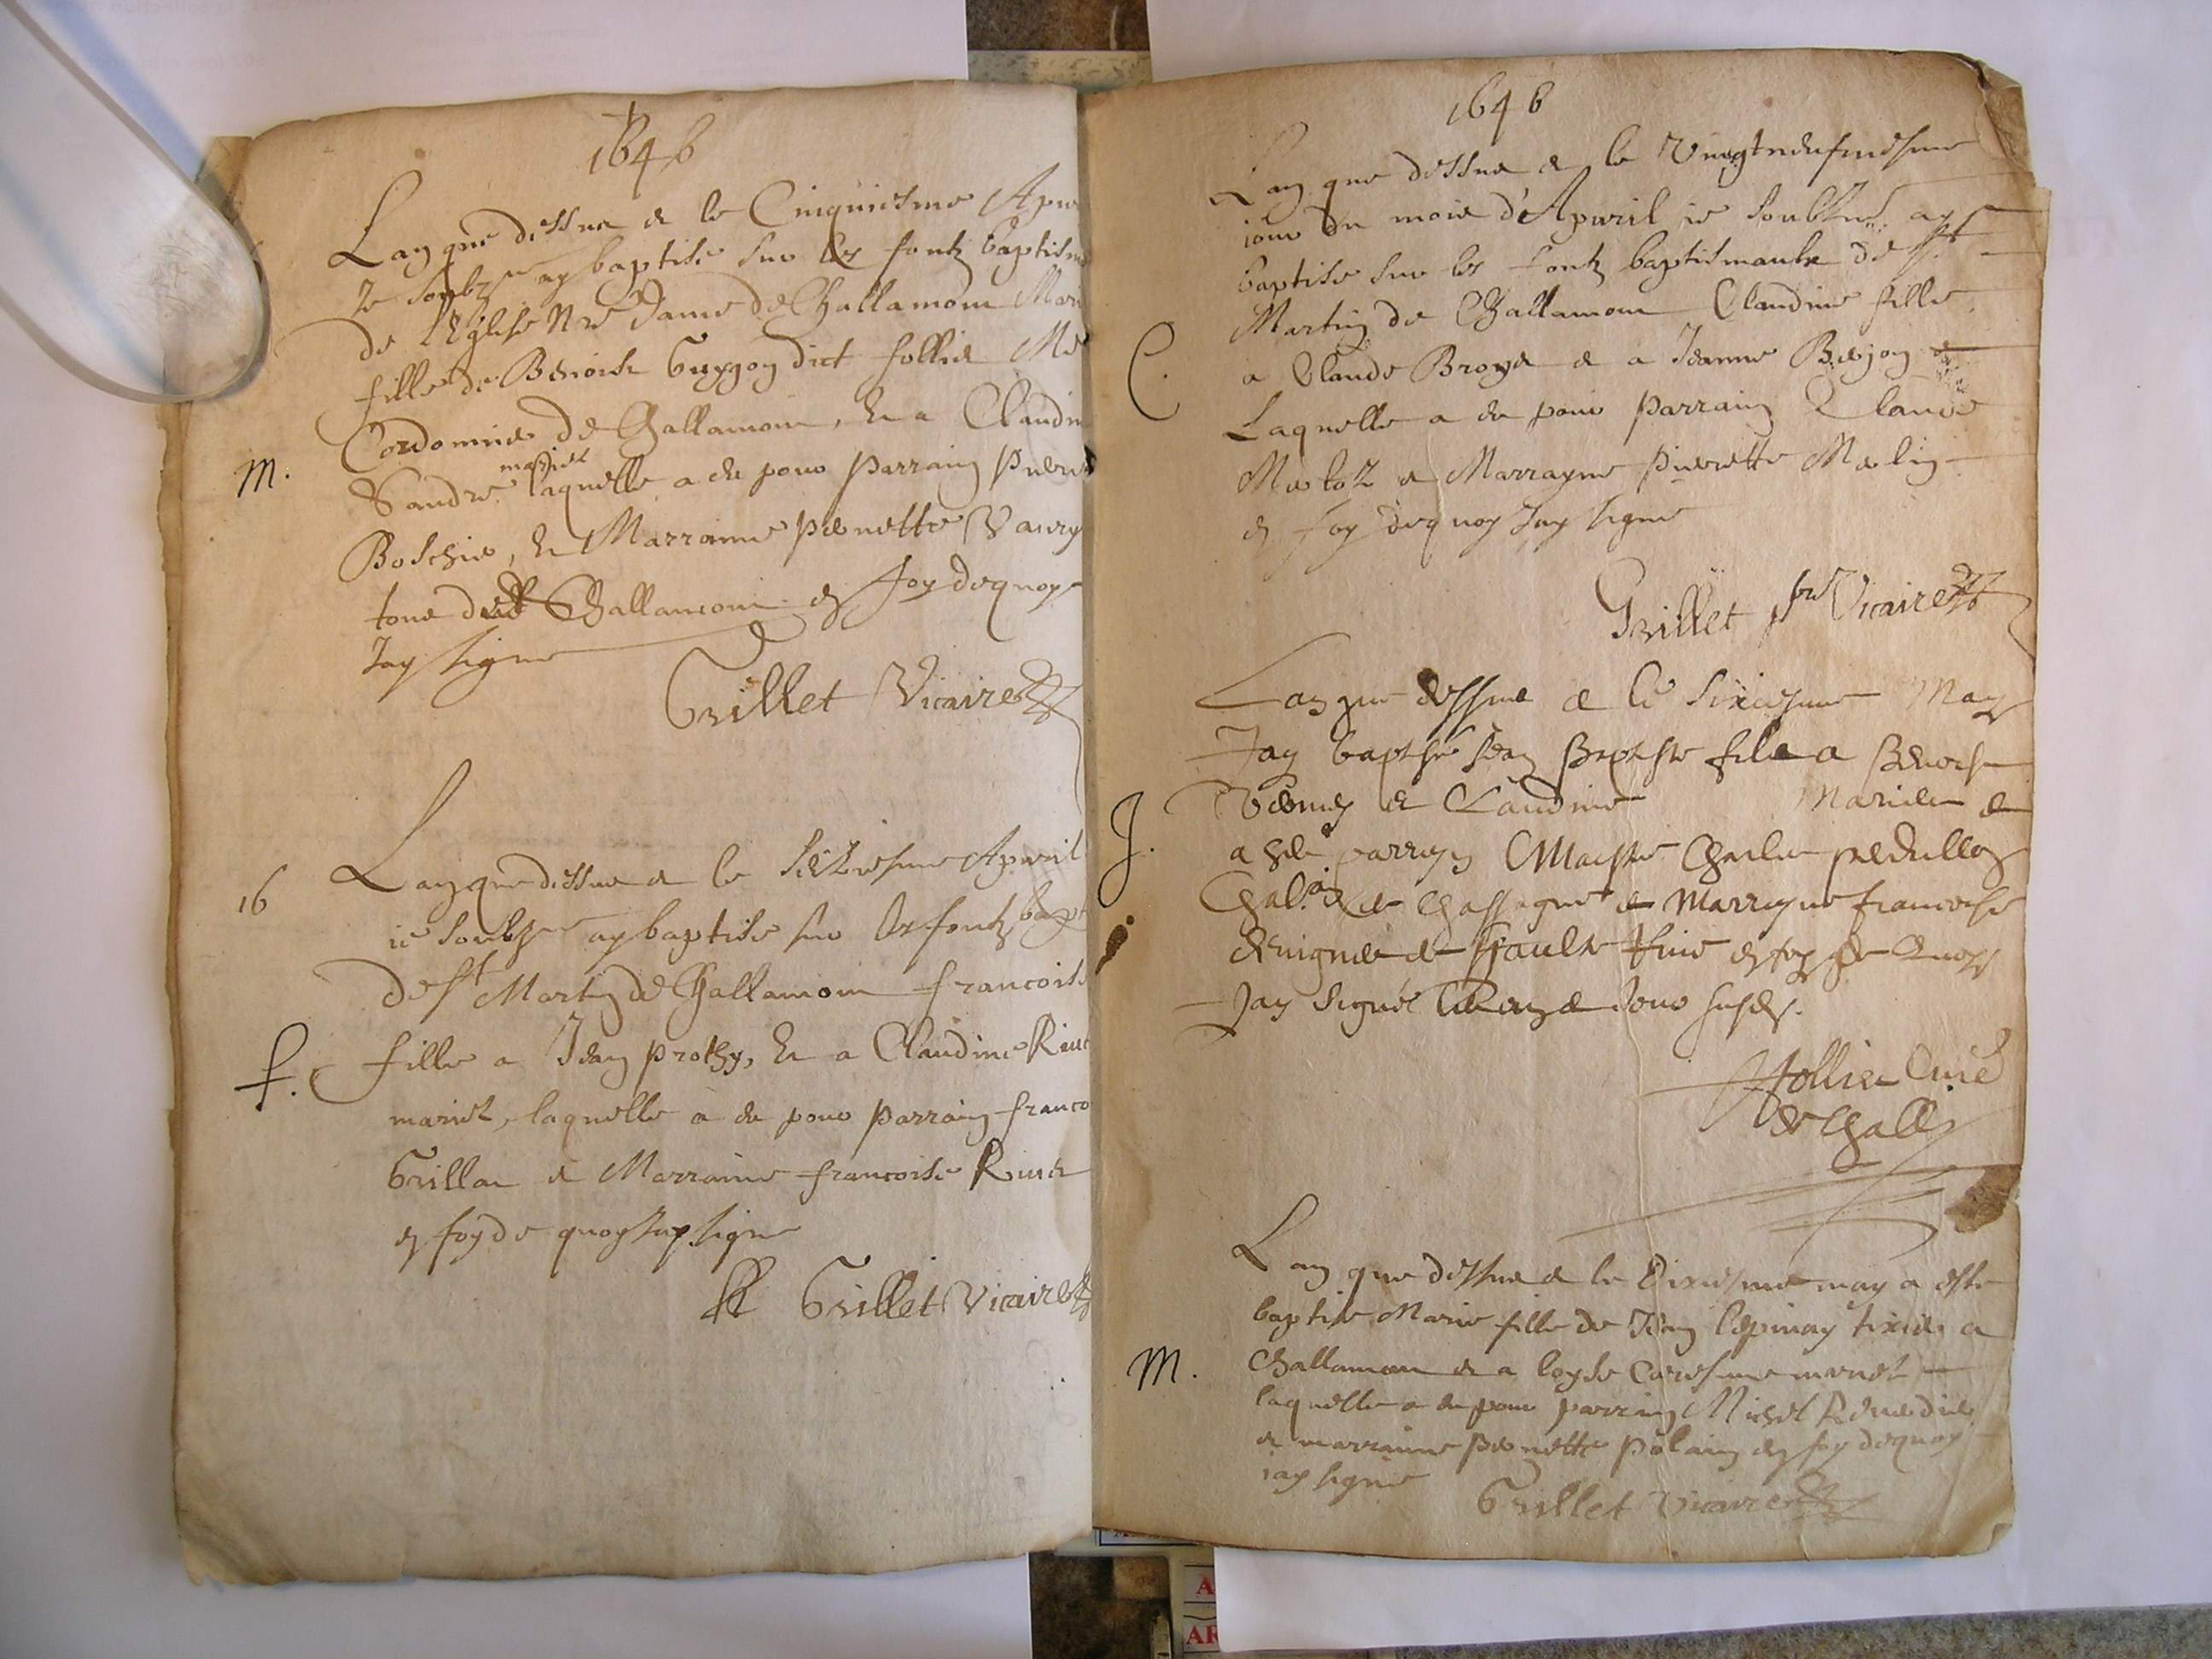 1646
Lan que dessus & le Cinquiesme Apu
Je soubzne ay baptise sur les fontz baptism
de l'Eglise Nre Dame de Challamont Mari
fille de Benoist Guygon dict follie Me
Cordonnie de Challamont, Et a Claudi
M.
Sandre mariez laquelle a eu pour Parrain Pierr
Boschie, Et Marraine Pernette Vaury
tous dud Challamont en foy dequoy
Jay signe
Grillet Vicaire
16
Lan que dessus & le Seiziesme Apuril
ie soubzne ay baptise sur les fontz bapt
de St Martin de Challamont francoise
f.
fille a Jean Prothy, Et a Claudine Riue
mariez, laquelle a eu pour Parrain franco
Grillat & Marraine francoise Riuet
en foy de quoy Jay signe
Grillet Vicaire
1646
Lan que dessus & le Vingtneufuiesme
iour du mois d'Apuril ie soubzne ay
baptise sur les fontz baptismaulx de St
Martin de Challamont Claudine fille
C.
a Claude Broye & a Jeanne
Laquelle a eu pour Parrain Claude
& Marrayne Pierrette
en foy dequoy Jay signe
Grillet pbre Vicaire
Lan que dessus & le sixiesme May
Jay baptisé Jean Baptiste filz a Benoist
& Claudine Mariez &
J.
a esté parrayn Maistre Charles
de Chassagne & Marrayne francoise
en foy de Quoy
Jay Signé les an & Jour susds.
follier Curé
de Chall
Lan que dessus & le Dixiesme may a este
baptise Marie fille de Jean Espinay tixie a
M.
Challamont & a loyse Caresme mariez
laquelle a eu pour parrain Michel
& marraine Pernette Polain en foy dequoy
iay signe
Grillet Vicaire